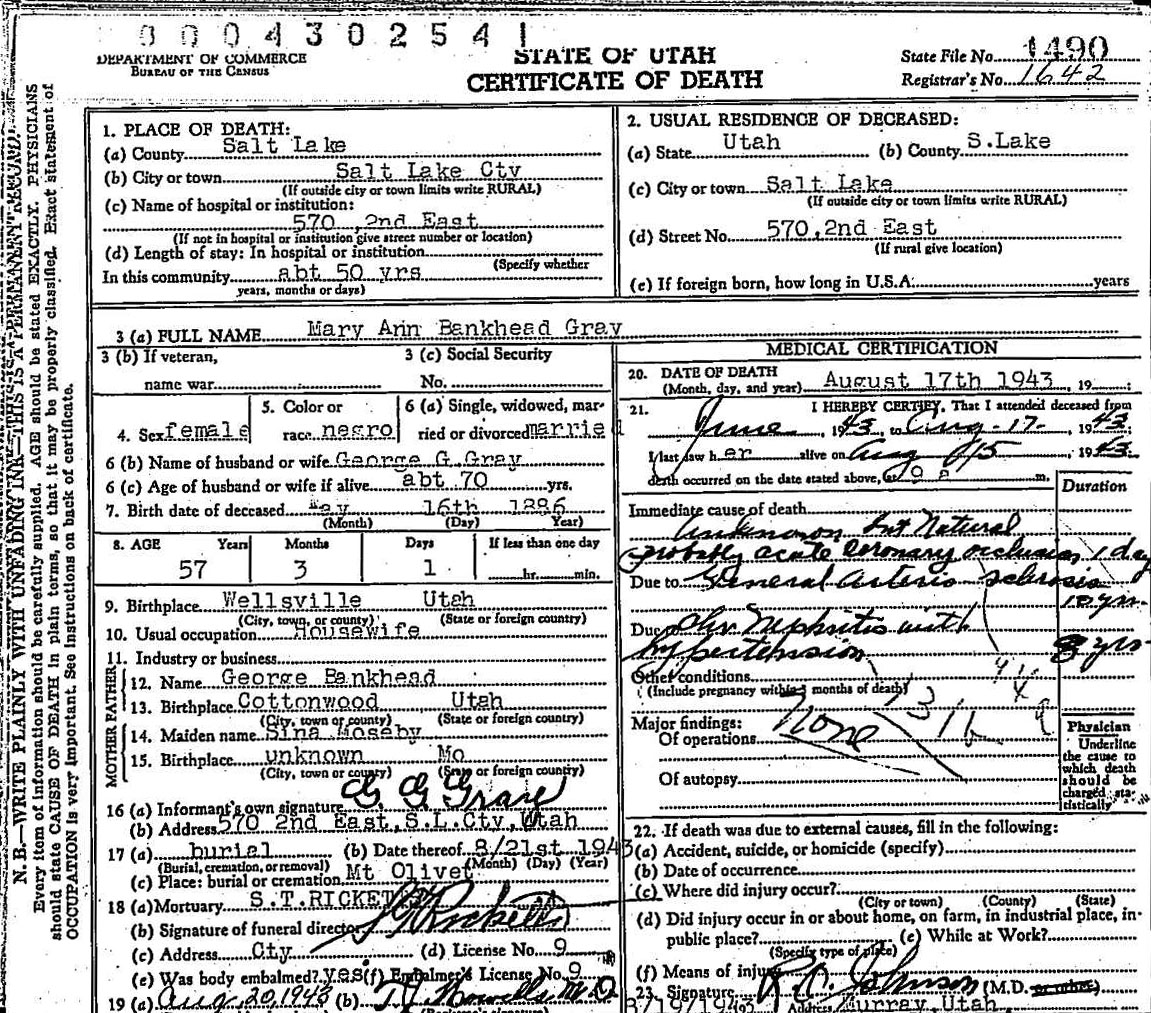 0 0 0 4 3 0 2 5 4 1
DEPARTMENT OF COMMERCE
BUREAU OF THE CENSUS
STATE OF UTAH
CERTIFICATE OF DEATH
State File No. 1490
Registrar's No. 1642
N. B.—WRITE PLAINLY WITH UNFADING INK—THIS IS A PERMANENT RECORD.
Every item of information should be carefully supplied. AGE should be stated EXACTLY. PHYSICIANS
should state CAUSE OF DEATH in plain terms, so that it may be properly classified. Exact statement of
OCCUPATION is very important. See instructions on back of certificate.
1. PLACE OF DEATH:
(a) County Salt Lake
(b) City or town Salt Lake Cty
(If outside city or town limits write RURAL)
(c) Name of hospital or institution:
570 ,2nd East
(If not in hospital or institution give street number or location)
(d) Length of stay: In hospital or institution
(Specify whether
In this community abt 50 yrs
years, months or days)
2. USUAL RESIDENCE OF DECEASED:
(a) State Utah (b) County S.Lake
(c) City or town Salt Lake
(If outside city or town limits write RURAL)
(d) Street No. 570,2nd East
(If rural give location)
(e) If foreign born, how long in U.S.A: years
3 (a) FULL NAME Mary Ann Bankhead Gray
3 (b) If veteran,
name war
3 (c) Social Security
No.
4. Sex female
5. Color or
race negro
6 (a) Single, widowed, mar-
ried or divorced marrie
6 (b) Name of husband or wife George G.Gray
6 (c) Age of husband or wife if alive abt 70 yrs.
7. Birth date of deceased May 16th 1886
(Month) (Day) Year)
8. AGE Years Months Days If less than one day
57 3 1 hr. min.
9. Birthplace Wellsville Utah
(City, town, or county) (State or foreign country)
10. Usual occupation Housewife
11. Industry or business
FATHER
12. Name George Bankhead
13. Birthplace Cottonwood Utah
(City, town or county) (State or foreign country)
MOTHER
14. Maiden name Sina Moseby
15. Birthplace unknown Mo
(City, town or county) (State or foreign country)
16 (a) Informant's own signature G G Gray
(b) Address 570 2nd East,S.L.Cty,Utah
17 (a) burial (b) Date thereof 8/21st 1943
(Burial, cremation, or removal) (Month) (Day) (Year)
(c) Place: burial or cremation Mt Olivet
18 (a) Mortuary S.T.RICKETTS
(b) Signature of funeral director Ricketts
(c) Address Cty (d) License No. 9
(e) Was body embalmed? yes (f) Embalmer's License No. 9
19 (a) Aug 20, 1943 (b) M.D
(Registrar's signature)
MEDICAL CERTIFICATION
20. DATE OF DEATH
(Month, day, and year) August 17th 1943 , 19 ;
21. I HEREBY CERTIFY, That I attended deceased from
June , 1943, to Aug-17- , 1943
I last saw her alive on Aug 15 , 1943.
death occurred on the date stated above, at 9 a m.
Duration
Immediate cause of death
Unknown but Natural
probably acute coronary occlusion 1 day
Due to General Arterio sclerosis
10 yrs.
Due to Chr Nephritis with
hypertension 8 yrs
Other conditions
(Include pregnancy within 3 months of death)
Major findings:
Of operations None
Of autopsy
Physician
Underline
the cause to
which death
should be
charged sta-
tistically
22. If death was due to external causes, fill in the following:
(a) Accident, suicide, or homicide (specify)
(b) Date of occurrence
(c) Where did injury occur?
(City or town) (County) (State)
(d) Did injury occur in or about home, on farm, in industrial place, in-
public place? (e) While at Work?
(Specify type of place)
(f) Means of injury
23. Signature Johnson (M.D. or other)
8/19/1943 Address Murray,Utah